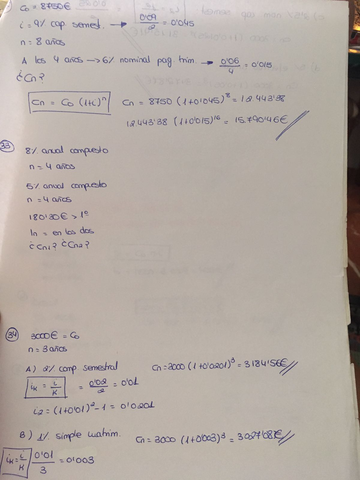 C₀ = 8750€
i = 9% cap semest. → 0'09/2 = 0'045
n = 8 años
A los 4 años → 6% nominal pag. trim. → 0'06/4 = 0'015
¿Cn?
Cn = C₀ (1+i)ⁿ Cn = 8750 (1+0'045)⁸ = 12.443'38
12.443'38 (1+0'015)¹⁶ = 15.790'46€
33
8% anual compuesto
n = 4 años
5% anual compuesto
n = 4 años
180'30€ > 1º
In = en los dos
¿Cn1? ¿Cn2?
34
3000€ = C₀
n = 3 años
A) 2% comp semestral Cn = 3000 (1+0'0201)³ = 3184'56€
iк = i/K = 0'02/2 = 0'01
i₂ = (1+0'01)² - 1 = 0'0201
B) 1% simple Cn = 3000 (1+0'003)³ = 3027'08€
iк = i/K 0'01/3 = 0'003